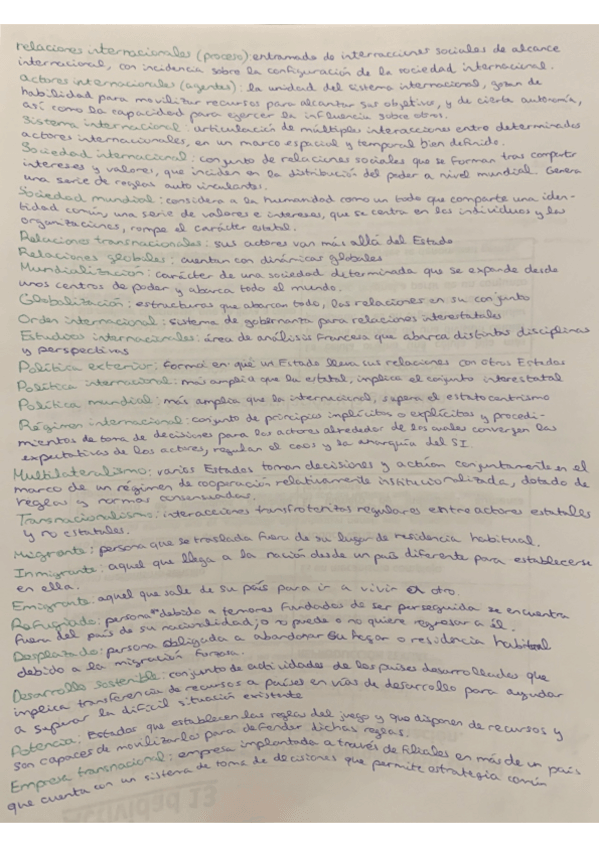 relaciones internacionales (proceso): entramado de interacciones sociales de alcance
internacional, con incidencia sobre la configuración de la sociedad internacional.
actores internacionales (agentes): la unidad del sistema internacional, gozan de
habilidad para movilizar recursos para alcanzar sus objetivos, y de cierta autonomía,
así como la capacidad para ejercer la influencia sobre otros.
Sistema internacional: articulación de múltiples interacciones entre determinados
actores internacionales, en un marco espacial y temporal bien definido.
Sociedad internacional: conjunto de relaciones sociales que se forman tras compartir
intereses y valores, que inciden en la distribución del poder a nivel mundial. Genera
una serie de reglas auto vinculantes.
Sociedad mundial: considera a la humanidad como un todo que comparte una iden-
tidad común, una serie de valores e intereses, que se centra en los individuos y las
organizaciones, rompe el carácter estatal.
Relaciones transnacionales: sus actores van más allá del Estado
Relaciones globales: cuentan con dinámicas globales
Mundialización: carácter de una sociedad determinada que se expande desde
unos centros de poder y abarca todo el mundo.
Globalización: estructuras que abarcan todo, las relaciones en su conjunto
Orden internacional: sistema de gobernanza para relaciones interestatales
Estudios internacionales: área de análisis francesa que abarca distintas disciplinas
y perspectivas
Política exterior: forma en que un Estado lleva sus relaciones con otros Estados
Política internacional: más amplia que la estatal, implica el conjunto interestatal
Política mundial: más amplia que la internacional, supera el estatocentrismo
Régimen internacional: conjunto de principios implícitos o explícitos y procedi-
mientos de toma de decisiones para los actores alrededor de los cuales convergen las
expectativas de los actores, regulan el caos y la anarquía del SI.
Multilateralismo: varios Estados toman decisiones y actúan conjuntamente en el
marco de un régimen de cooperación relativamente institucionalizada, dotado de
reglas y normas consensuadas.
Transnacionalismo: interacciones transfronterizos regulares entre actores estatales
y no estatales.
Migrante: persona que se traslada fuera de su lugar de residencia habitual.
Inmigrante: aquel que llega a la nación desde un país diferente para establecerse
en ella.
Emigrante: aquel que sale de su país para ir a vivir a otro.
Refugiado: persona debido a temores fundados de ser perseguida se encuentra
fuera del país de su nacionalidad; o no puede o no quiere regresar a él.
Desplazado: persona obligada a abandonar su hogar o residencia habitual
debido a la migración forzosa.
Desarrollo sostenible: conjunto de actividades de los países desarrollados que
implica transferencia de recursos a países en vías de desarrollo para ayudar
a superar la difícil situación existente
Potencia: Estados que establecen las reglas del juego y que disponen de recursos y
son capaces de movilizarlos para defender dichas reglas.
Empresa transnacional: empresa implantada a través de filiales en más de un país
que cuenta con un sistema de toma de decisiones que permite estrategia común